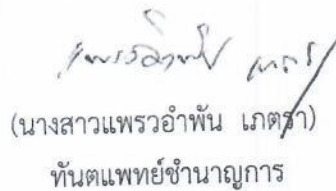 (นางสาวแพรวอำพัน เภตรา)
ทันตแพทย์ชำนาญการ